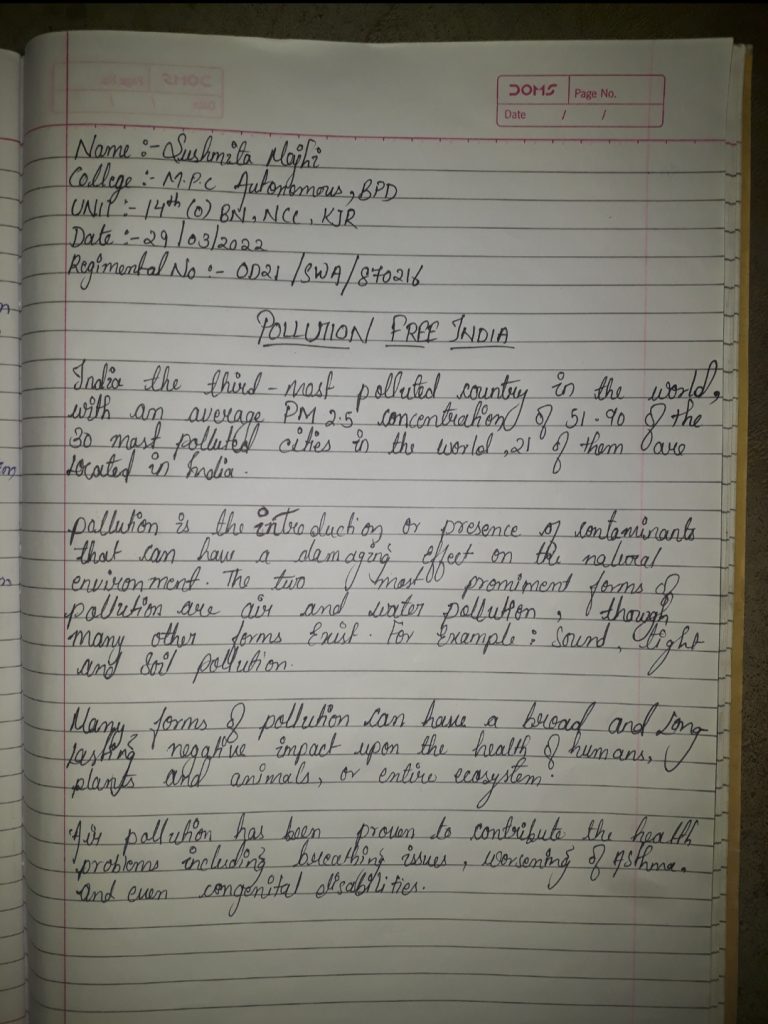 DOMS Page No.
Date / /
Name :- Sushmita Majhi
College :- M.P.C Autonomous, BPD
UNIT :- 14th (O) BN, NCC, KJR
Date :- 29/03/2022
Regimental No :- OD21/SWA/870216
POLLUTION FREE INDIA
India the third-most polluted country in the world,
with an average PM 2.5 concentration of 51.90 of the
30 most polluted cities in the world, 21 of them are
Located in India.
pollution is the introduction or presence of contaminants
that can have a damaging effect on the natural
environment. The two most prominent forms of
pollution are air and water pollution, though
many other forms Exist. For Example: Sound, light
and Soil pollution.
Many forms of pollution can have a broad and Long
Lasting negative impact upon the health of humans,
plants and animals, or entire ecosystem.
Air pollution has been proven to contribute the health
problems including breathing issues, worsening of Asthma.
and even congenital disabilities.